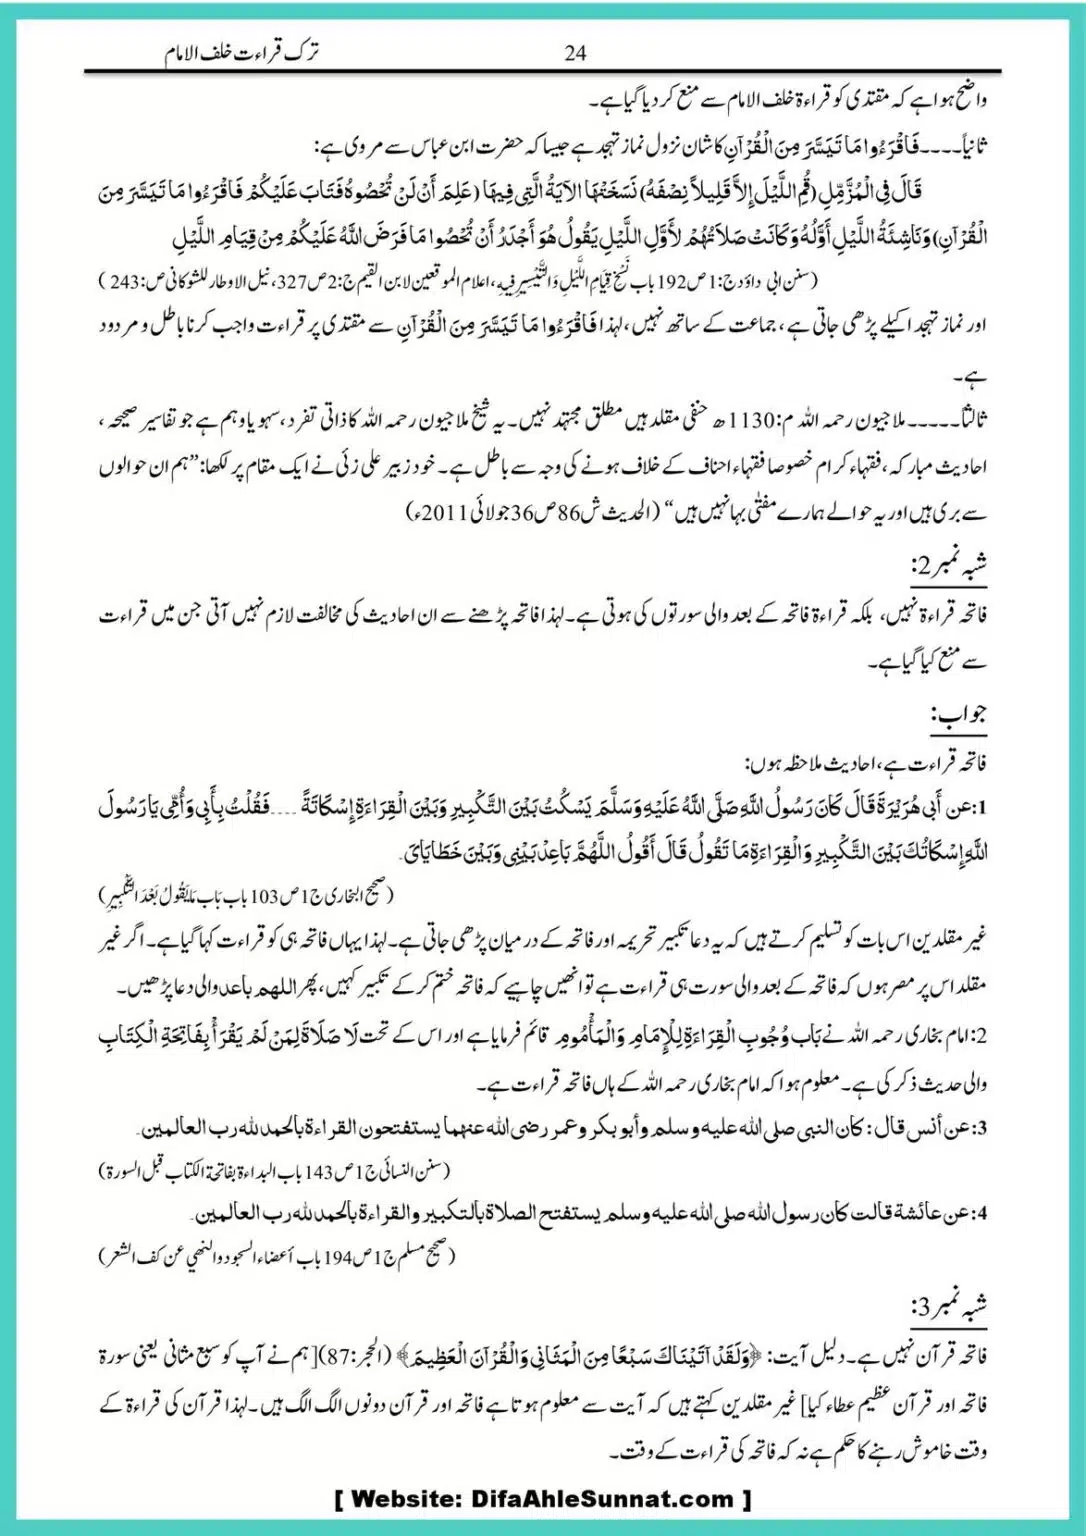 ترک قراءت خلف الامام 24
واضح ہوا ہے کہ مقتدی کو قراءۃ خلف الامام سے منع کر دیا گیا ہے۔
ثانیاً۔۔۔۔ فَاقْرَءُوا مَا تَيَسَّرَ مِنَ الْقُرْآنِ کا شان نزول نماز تہجد ہے جیسا کہ حضرت ابن عباس سے مروی ہے:
قَالَ فِى الْمُزَّمِّلِ (قُمِ اللَّيْلَ إِلاَّ قَلِيلاً نِصْفَهُ) نَسَخَتْهَا الآيَةُ الَّتِى فِيهَا (عَلِمَ أَنْ لَنْ تُحْصُوهُ فَتَابَ عَلَيْكُمْ فَاقْرَءُوا مَا تَيَسَّرَ مِنَ
الْقُرْآنِ) وَنَاشِئَةُ اللَّيْلِ أَوَّلُهُ وَكَانَتْ صَلاَتُهُمْ لأَوَّلِ اللَّيْلِ يَقُولُ هُوَ أَجْدَرُ أَنْ تُحْصُوا مَا فَرَضَ اللَّهُ عَلَيْكُمْ مِنْ قِيَامِ اللَّيْلِ
(سنن ابی داؤد ج:1 ص192 باب نَسْخِ قِيَامِ اللَّيْلِ وَالتَّيْسِيرِ فِيهِ، اعلام الموقعین لابن القیم ج:2 ص327، نیل الاوطار للشوکانی ص:243)
اور نماز تہجد اکیلے پڑھی جاتی ہے، جماعت کے ساتھ نہیں، لہذا فَاقْرَءُوا مَا تَيَسَّرَ مِنَ الْقُرْآنِ سے مقتدی پر قراءت واجب کرنا باطل و مردود
ہے۔
ثالثاً۔۔۔۔۔ ملا جیون رحمہ اللہ م:1130ھ حنفی مقلد ہیں مطلق مجتہد نہیں۔ یہ شیخ ملا جیون رحمہ اللہ کا ذاتی تفرد، سہو یا وہم ہے جو تفاسیر صحیحہ،
احادیث مبارکہ، فقہاء کرام خصوصا فقہاء احناف کے خلاف ہونے کی وجہ سے باطل ہے۔ خود زبیر علی زئی نے ایک مقام پر لکھا: ”ہم ان حوالوں
سے بری ہیں اور یہ حوالے ہمارے مفتیٰ بہا نہیں ہیں“ (الحدیث ش86 ص36 جولائی 2011ء)
شبہ نمبر 2:
فاتحہ قراءۃ نہیں، بلکہ قراءۃ فاتحہ کے بعد والی سورتوں کی ہوتی ہے۔ لہذا فاتحہ پڑھنے سے ان احادیث کی مخالفت لازم نہیں آتی جن میں قراءت
سے منع کیا گیا ہے۔
جواب:
فاتحہ قراءت ہے، احادیث ملاحظہ ہوں:
1: عن أَبِى هُرَيْرَةَ قَالَ كَانَ رَسُولُ اللَّهِ صَلَّى اللَّهُ عَلَيْهِ وَسَلَّمَ يَسْكُتُ بَيْنَ التَّكْبِيرِ وَبَيْنَ الْقِرَاءَةِ إِسْكَاتَةً ....فَقُلْتُ بِأَبِى وَأُمِّى يَا رَسُولَ
اللَّهِ إِسْكَاتُكَ بَيْنَ التَّكْبِيرِ وَالْقِرَاءَةِ مَا تَقُولُ قَالَ أَقُولُ اللَّهُمَّ بَاعِدْ بَيْنِى وَبَيْنَ خَطَايَاىَ۔
(صحیح البخاری ج1 ص103 باب بَاب مَا يَقُولُ بَعْدَ التَّكْبِيرِ)
غیر مقلدین اس بات کو تسلیم کرتے ہیں کہ یہ دعا تکبیر تحریمہ اور فاتحہ کے درمیان پڑھی جاتی ہے۔ لہذا یہاں فاتحہ ہی کو قراءت کہا گیا ہے۔ اگر غیر
مقلد اس پر مصر ہوں کہ فاتحہ کے بعد والی سورت ہی قراءت ہے تو انھیں چاہیے کہ فاتحہ ختم کر کے تکبیر کہیں، پھر اللهم باعد والی دعا پڑھیں۔
2: امام بخاری رحمہ اللہ نے بَاب وُجُوبِ الْقِرَاءَةِ لِلْإِمَامِ وَالْمَأْمُومِ قائم فرمایا ہے اور اس کے تحت لَا صَلَاةَ لِمَنْ لَمْ يَقْرَأْ بِفَاتِحَةِ الْكِتَابِ
والی حدیث ذکر کی ہے۔ معلوم ہوا کہ امام بخاری رحمہ اللہ کے ہاں فاتحہ قراءت ہے۔
3: عن أنس قال: كان النبى صلى الله عليه وسلم وأبو بكر وعمر رضى الله عنهما يستفتحون القراءة بالحمد لله رب العالمين۔
(سنن النسائی ج1 ص143 باب البداءة بفاتحة الكتاب قبل السورة)
4: عن عائشة قالت كان رسول الله صلى الله عليه وسلم يستفتح الصلاة بالتكبير والقراءة بالحمد لله رب العالمين۔
(صحیح مسلم ج1 ص194 باب أعضاء السجود والنهي عن كف الشعر)
شبہ نمبر 3:
فاتحہ قرآن نہیں ہے۔ دلیل آیت: ﴿وَلَقَدْ آتَيْنَاكَ سَبْعًا مِنَ الْمَثَانِى وَالْقُرْآنَ الْعَظِيمَ﴾ (الحجر:87) [ہم نے آپ کو سبع مثانی یعنی سورۃ
فاتحہ اور قرآن عظیم عطاء کیا] غیر مقلدین کہتے ہیں کہ آیت سے معلوم ہوتا ہے فاتحہ اور قرآن دونوں الگ الگ ہیں۔ لہذا قرآن کی قراءۃ کے
وقت خاموش رہنے کا حکم ہے نہ کہ فاتحہ کی قراءت کے وقت۔
[ Website: DifaAhleSunnat.com ]